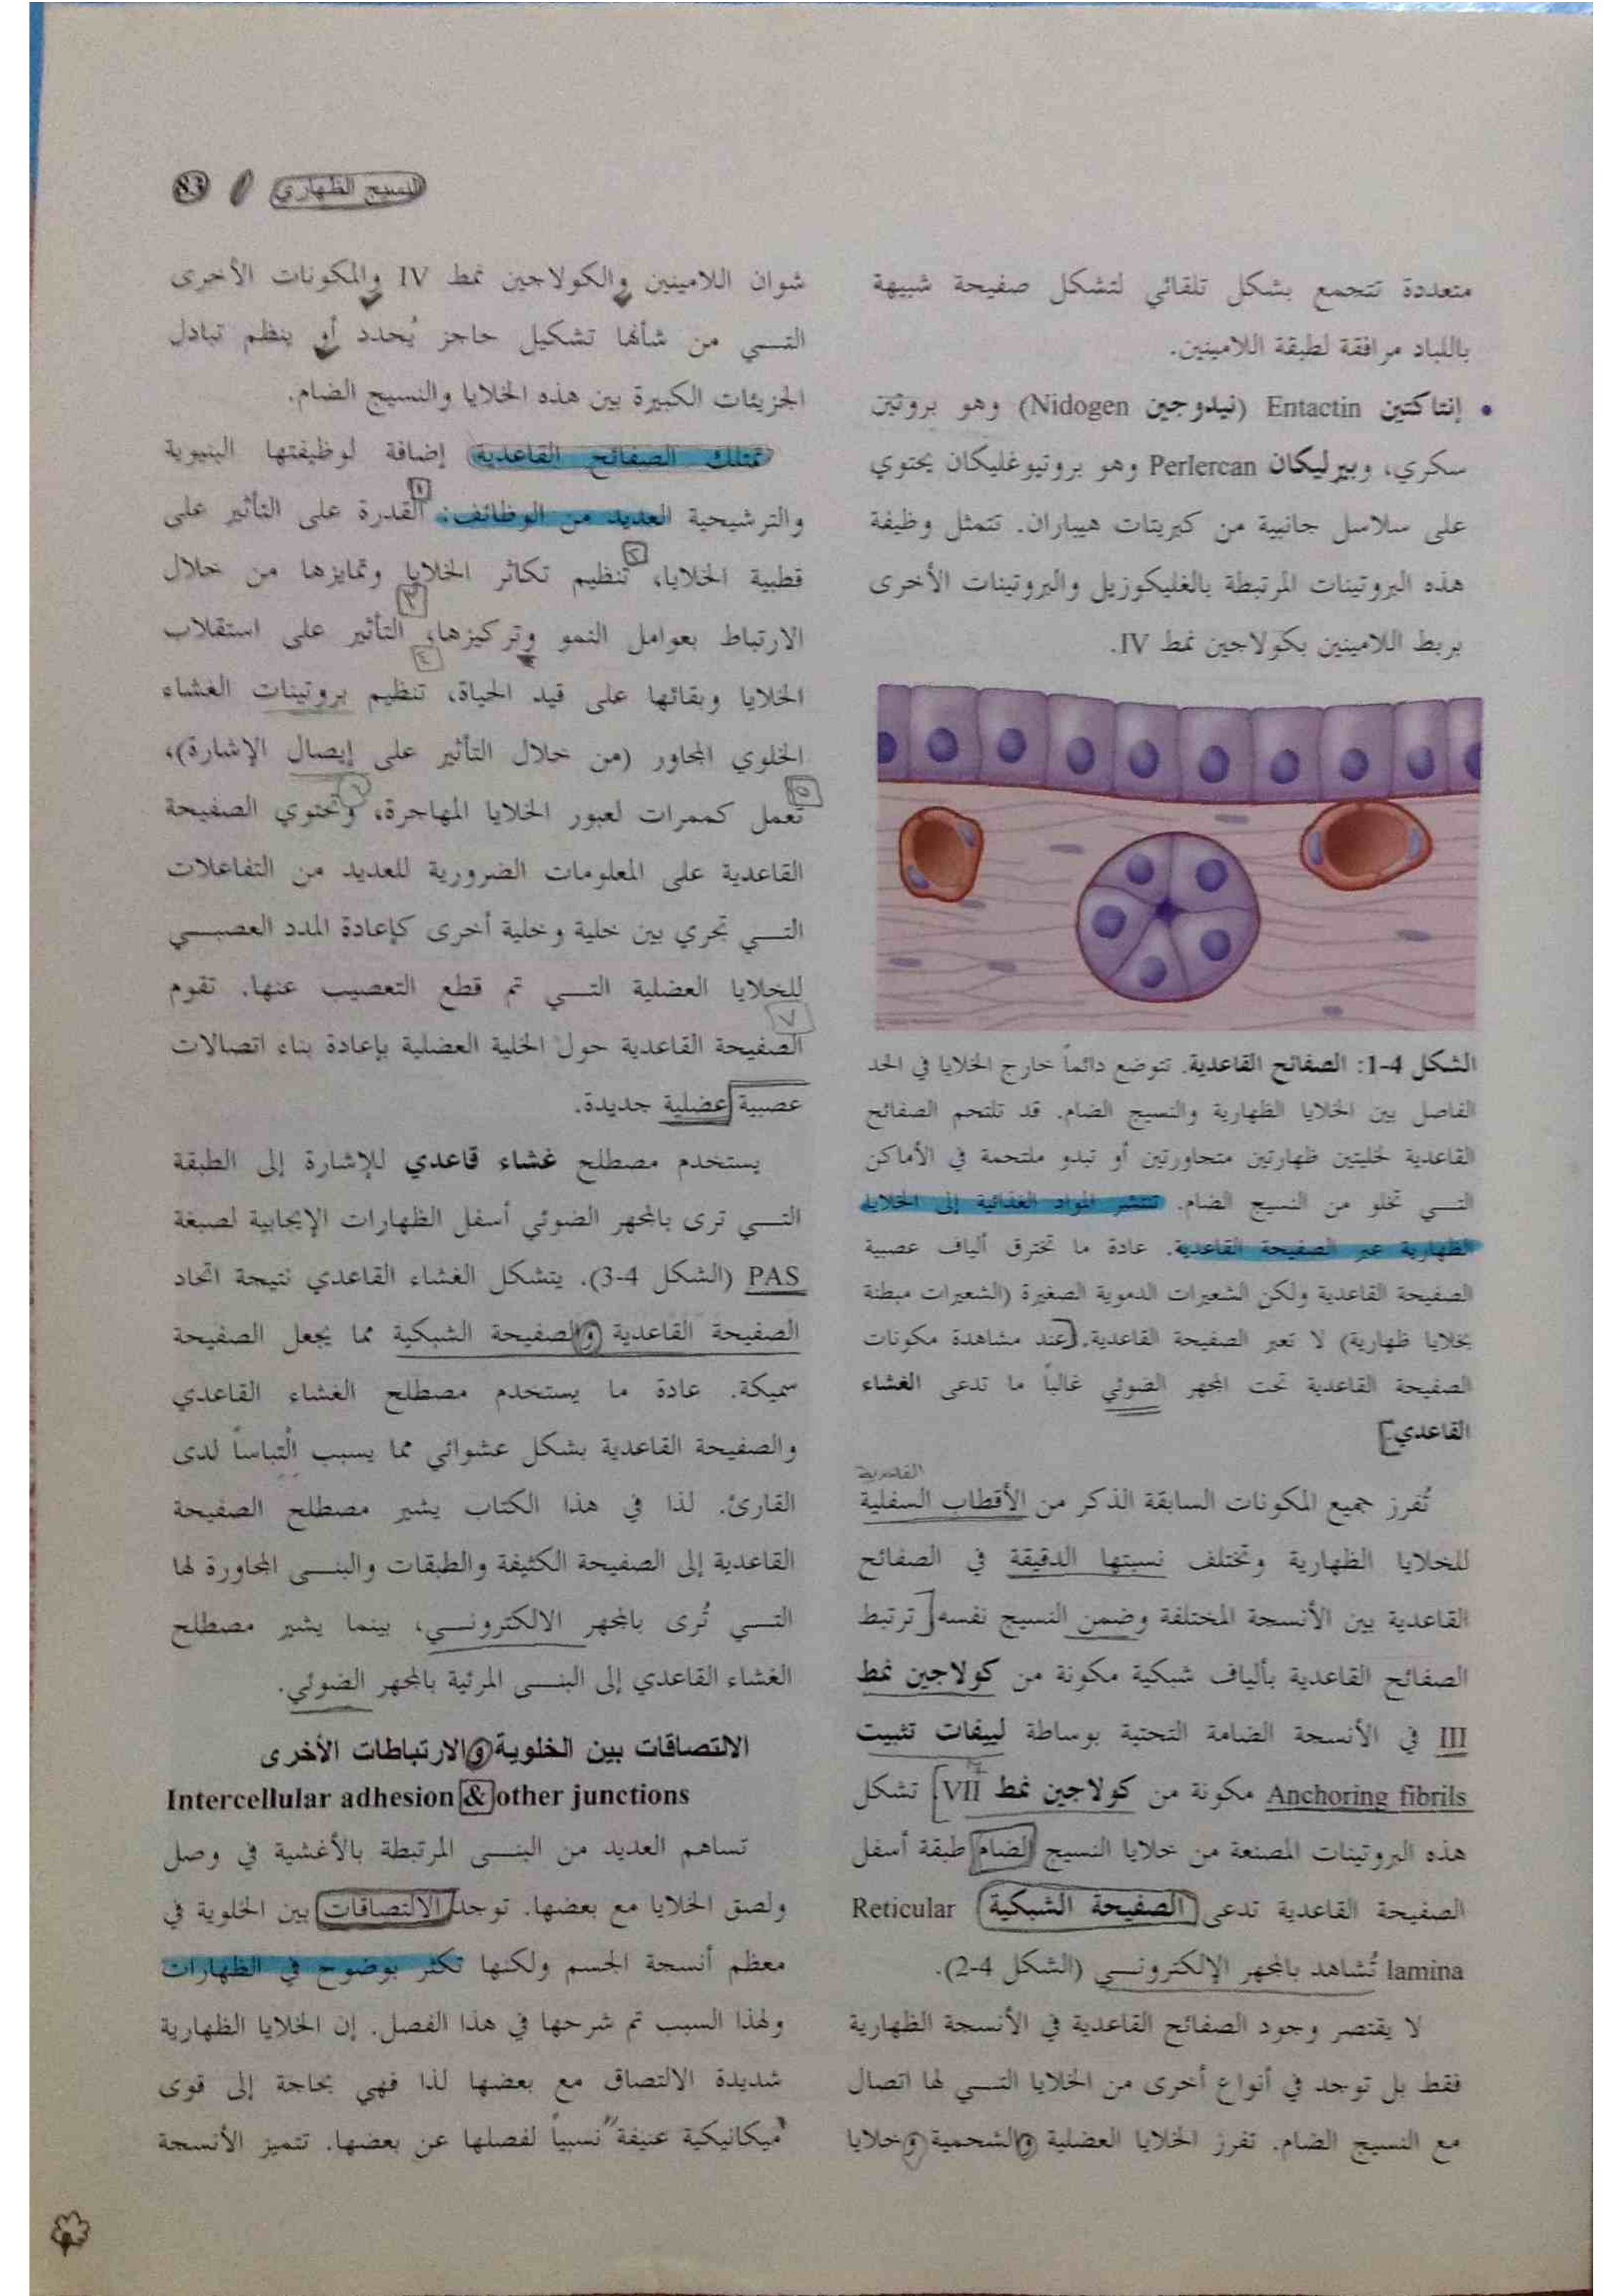 النسيج الظهاري / 83
متعددة تتجمع بشكل تلقائي لتشكل صفيحة شبيهة
باللباد مرافقة لطبقة اللامينين.
• إنتاكتين Entactin (نيدوجين Nidogen) وهو بروتين
سكري، وبيرليكان Perlercan وهو بروتيوغليكان يحتوي
على سلاسل جانبية من كبريتات هيباران. تتمثل وظيفة
هذه البروتينات المرتبطة بالغليكوزيل والبروتينات الأخرى
بربط اللامينين بكولاجين نمط IV.
الشكل 4-1: الصفائح القاعدية. تتوضع دائماً خارج الخلايا في الحد
الفاصل بين الخلايا الظهارية والنسيج الضام. قد تلتحم الصفائح
القاعدية لخليتين ظهارتين متجاورتين أو تبدو ملتحمة في الأماكن
التي تخلو من النسيج الضام. تنتشر المواد الغذائية إلى الخلايا
الظهارية عبر الصفيحة القاعدية. عادة ما تخترق ألياف عصبية
الصفيحة القاعدية ولكن الشعيرات الدموية الصغيرة (الشعيرات مبطنة
بخلايا ظهارية) لا تعبر الصفيحة القاعدية. [عند مشاهدة مكونات
الصفيحة القاعدية تحت المجهر الضوئي غالباً ما تدعى الغشاء
القاعدي.]
القاعدية
تُفرز جميع المكونات السابقة الذكر من الأقطاب السفلية
للخلايا الظهارية وتختلف نسبتها الدقيقة في الصفائح
القاعدية بين الأنسجة المختلفة وضمن النسيج نفسه. [ترتبط
الصفائح القاعدية بألياف شبكية مكونة من كولاجين نمط
III في الأنسجة الضامة التحتية بوساطة لييفات تثبيت
Anchoring fibrils مكونة من كولاجين نمط VII]. تشكل
هذه البروتينات المصنعة من خلايا النسيج الضام طبقة أسفل
الصفيحة القاعدية تدعى (الصفيحة الشبكية) Reticular
lamina تُشاهد بالمجهر الإلكتروني (الشكل 4-2).
لا يقتصر وجود الصفائح القاعدية في الأنسجة الظهارية
فقط بل توجد في أنواع أخرى من الخلايا التي لها اتصال
مع النسيج الضام. تفرز الخلايا العضلية والشحمية وخلايا
شوان اللامينين والكولاجين نمط IV والمكونات الأخرى
التي من شأنها تشكيل حاجز يُحدد أو ينظم تبادل
الجزيئات الكبيرة بين هذه الخلايا والنسيج الضام.
تمتلك الصفائح القاعدية إضافة لوظيفتها البنيوية
والترشيحية العديد من الوظائف: ١ القدرة على التأثير على
قطبية الخلايا، ٢ تنظيم تكاثر الخلايا وتمايزها من خلال
الارتباط بعوامل النمو وتركيزها، ٣ التأثير على استقلاب
الخلايا وبقائها على قيد الحياة، ٤ تنظيم بروتينات الغشاء
الخلوي المجاور (من خلال التأثير على إيصال الإشارة)،
٥ تعمل كممرات لعبور الخلايا المهاجرة، ٦ وتحتوي الصفيحة
القاعدية على المعلومات الضرورية للعديد من التفاعلات
التي تجري بين خلية وخلية أخرى كإعادة المدد العصبي
للخلايا العضلية التي تم قطع التعصيب عنها. تقوم
٧ الصفيحة القاعدية حول الخلية العضلية بإعادة بناء اتصالات
عصبية عضلية جديدة.
يستخدم مصطلح غشاء قاعدي للإشارة إلى الطبقة
التي ترى بالمجهر الضوئي أسفل الظهارات الإيجابية لصبغة
PAS (الشكل 4-3). يتشكل الغشاء القاعدي نتيجة اتحاد
الصفيحة القاعدية والصفيحة الشبكية مما يجعل الصفيحة
سميكة. عادة ما يستخدم مصطلح الغشاء القاعدي
والصفيحة القاعدية بشكل عشوائي مما يسبب التباساً لدى
القارئ. لذا في هذا الكتاب يشير مصطلح الصفيحة
القاعدية إلى الصفيحة الكثيفة والطبقات والبنى المجاورة لها
التي تُرى بالمجهر الالكتروني، بينما يشير مصطلح
الغشاء القاعدي إلى البنى المرئية بالمجهر الضوئي.
الالتصاقات بين الخلوية والارتباطات الأخرى
Intercellular adhesion & other junctions
تساهم العديد من البنى المرتبطة بالأغشية في وصل
ولصق الخلايا مع بعضها. توجد الالتصاقات بين الخلوية في
معظم أنسجة الجسم ولكنها تكثر بوضوح في الظهارات
ولهذا السبب تم شرحها في هذا الفصل. إن الخلايا الظهارية
شديدة الالتصاق مع بعضها لذا فهي بحاجة إلى قوى
"ميكانيكية عنيفة" نسبياً لفصلها عن بعضها. تتميز الأنسجة